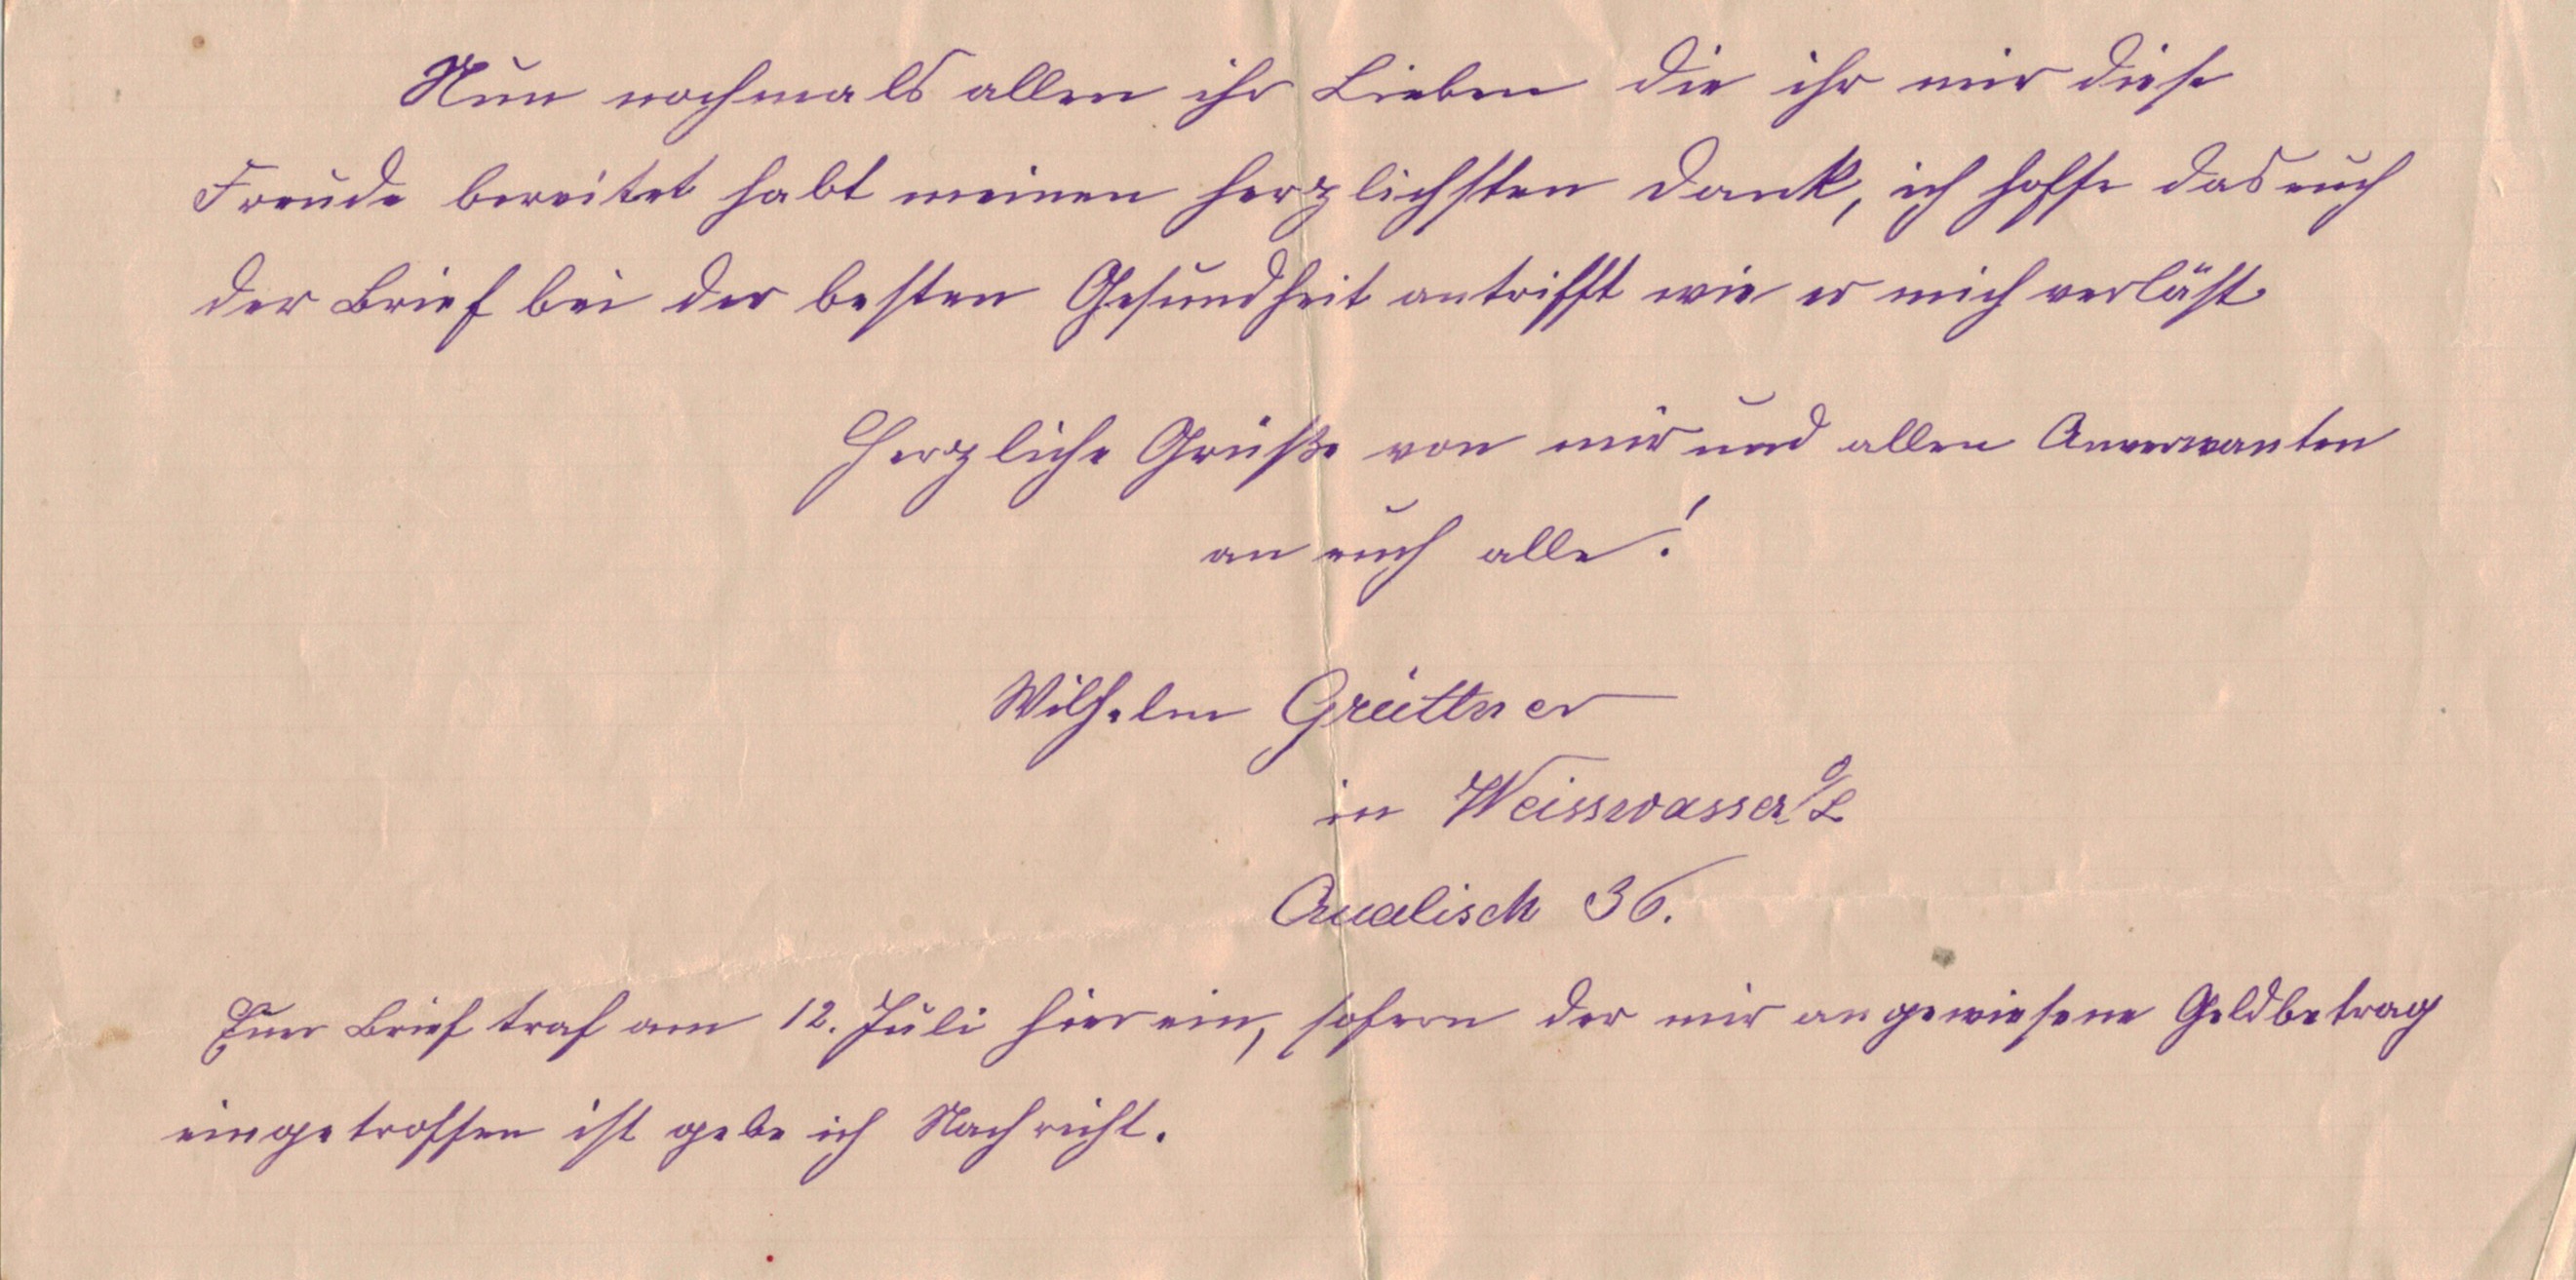 Nun nochmals allen ihr Lieben die ihr mir diese
Freude bereitet habt meinen herzlichsten Dank, ich hoffe das euch
der Brief bei der besten Gesundheit antrifft wie er mich verläst
Herzliche Grüße von mir und allen Anverwanten
an euch alle!
Wilhelm Grüttner
in Weisswasser o/L
Qualisch 36.
Euer Brief traf am 12. Juli hier ein, sofern der mir angewiesene Geldbetrag
eingetroffen ist gebe ich Nachricht.